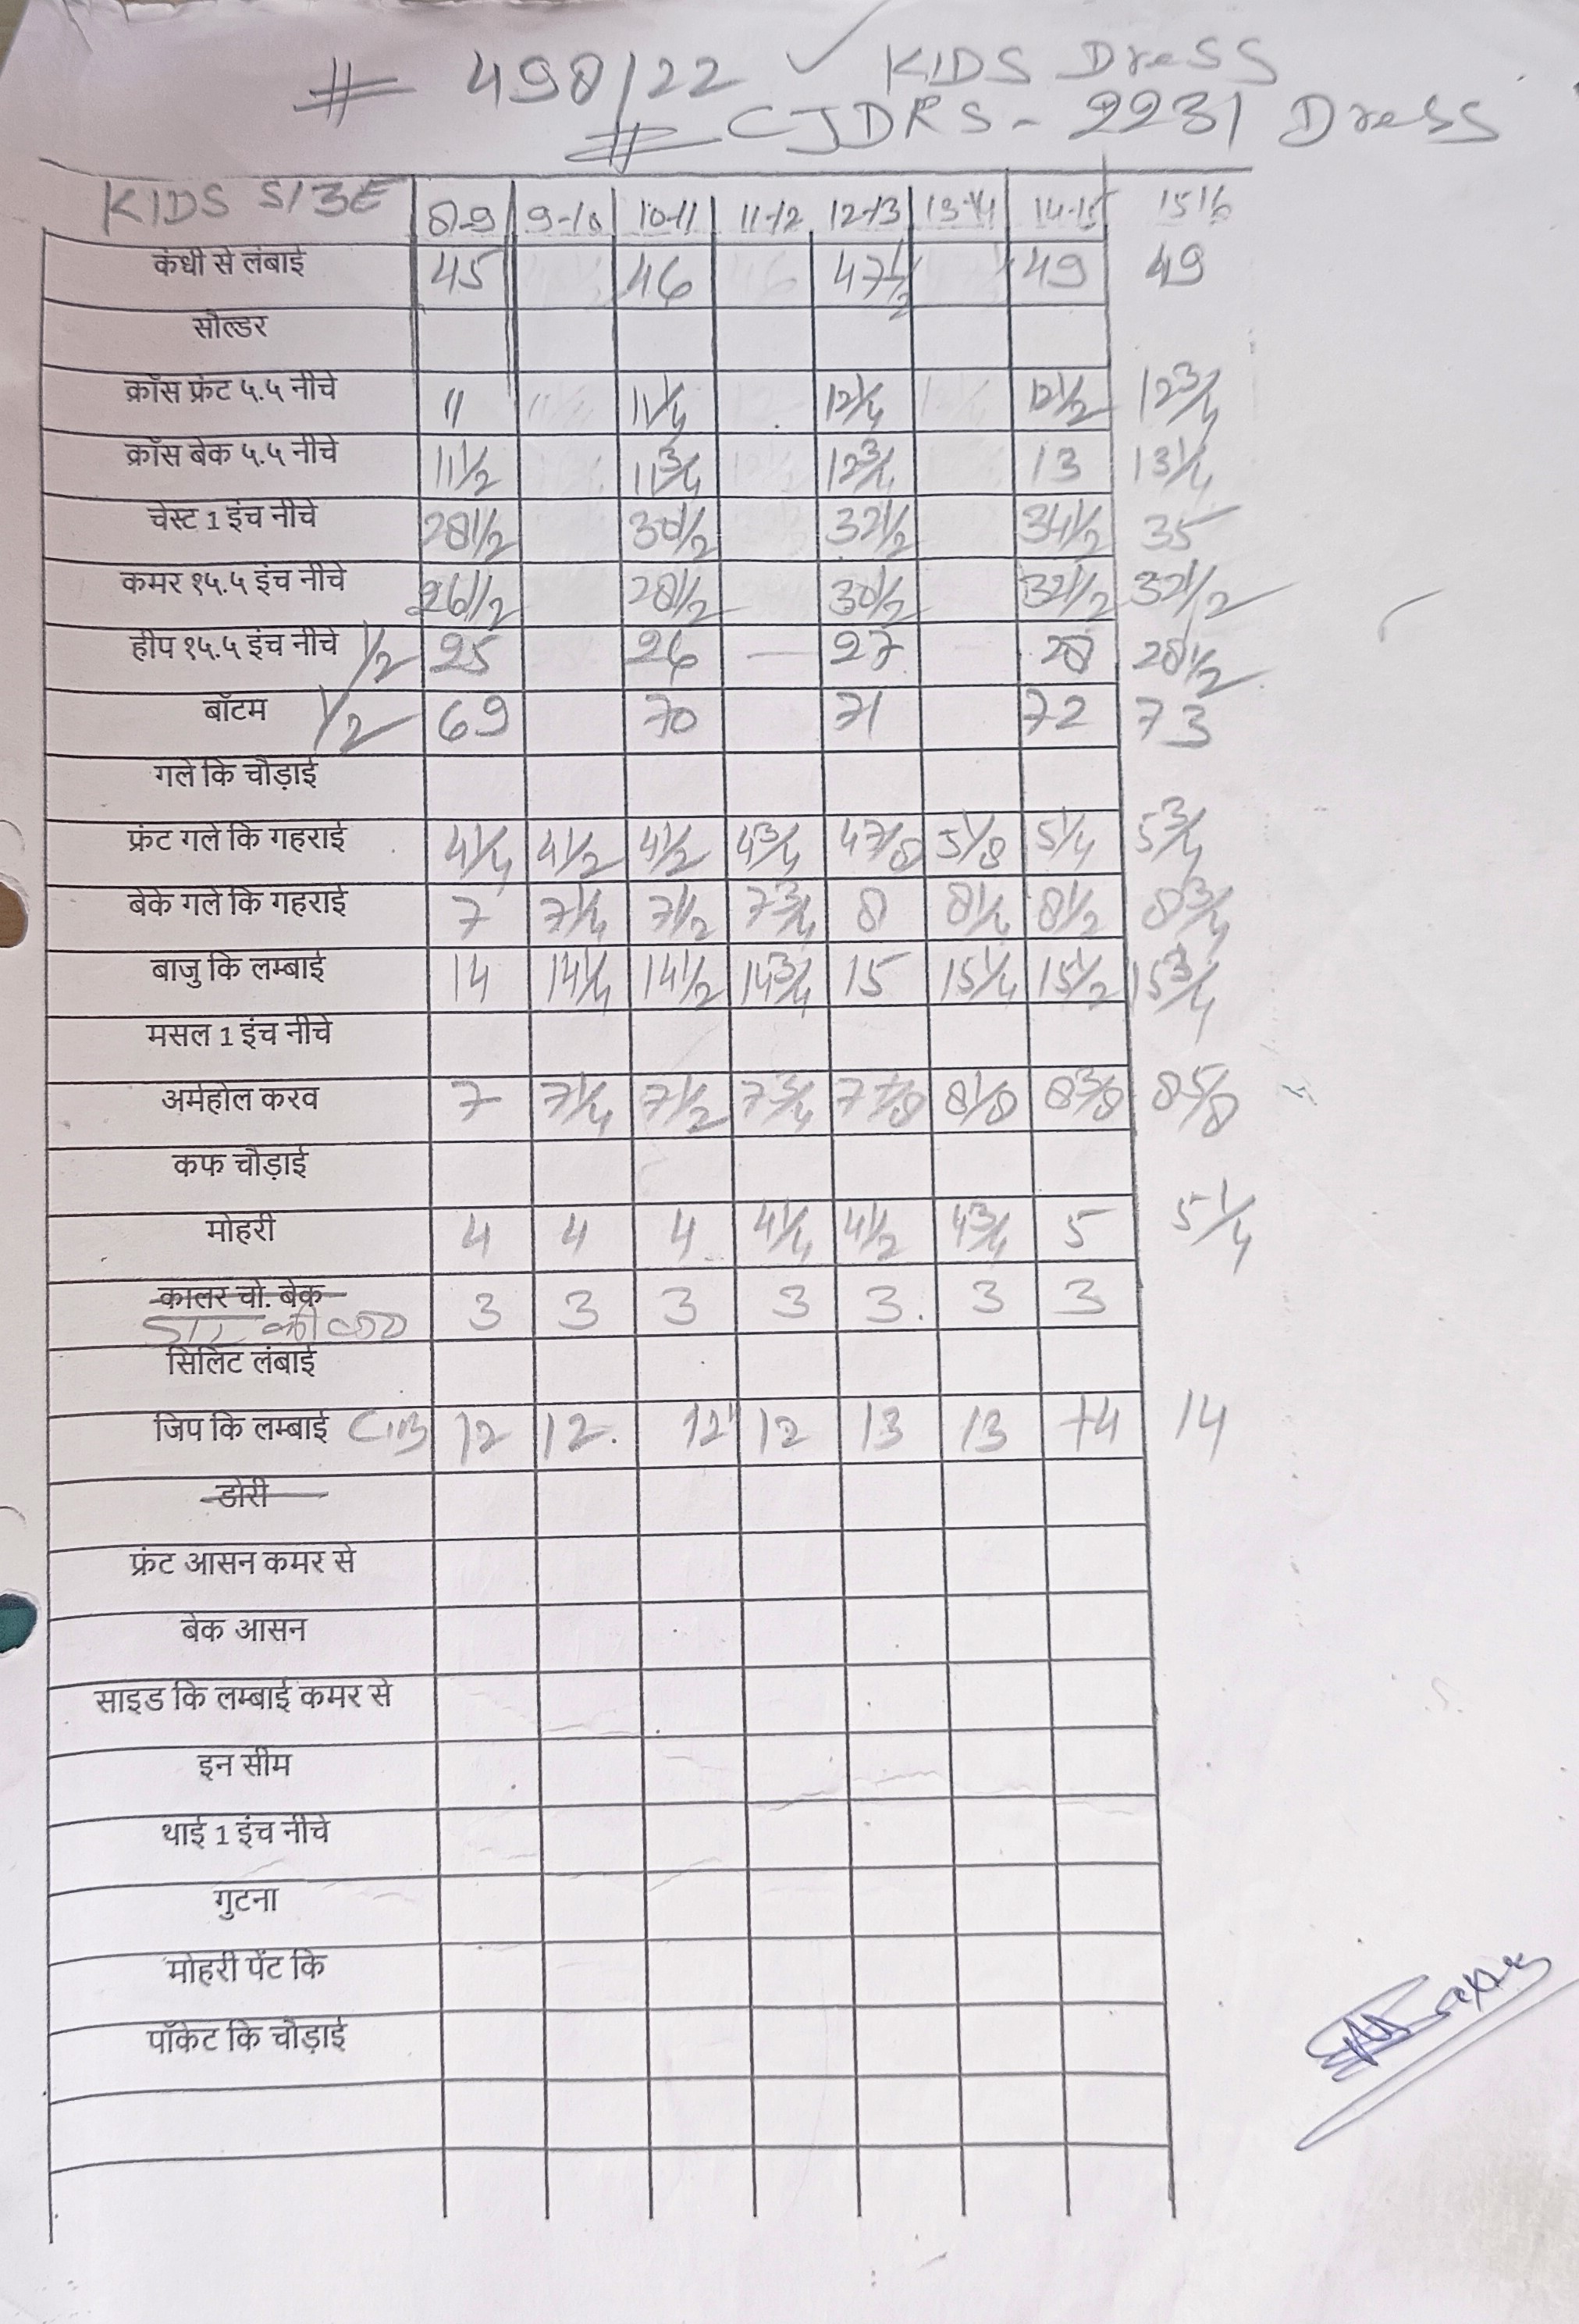 # 498/22 ✓ KIDS Dress
# CJDRS - 2231 Dress
KIDS SIZE 8-9 9-10 10-11 11-12 12-13 13-14 14-15 15 16
कंधी से लंबाई 45 46 47 1/2 49 49
सोल्डर
क्रॉस फ्रंट ५.५ नीचे 11 11 1/4 12 1/4 12 1/2 12 3/4
क्रॉस बेक ५.५ नीचे 11 1/2 11 3/4 12 3/4 13 13 1/4
चेस्ट 1 इंच नीचे 28 1/2 30 1/2 32 1/2 34 1/2 35
कमर १५.५ इंच नीचे 26 1/2 28 1/2 30 1/2 32 1/2 32 1/2
हीप १५.५ इंच नीचे 1/2 25 26 27 28 28 1/2
बॉटम 1/2 69 70 71 72 73
गले कि चौड़ाई
फ्रंट गले कि गहराई 4 1/4 4 1/2 4 1/2 4 3/4 4 7/8 5 1/8 5 1/4 5 3/4
बेके गले कि गहराई 7 7 1/4 7 1/2 7 3/4 8 8 1/4 8 1/2 8 3/4
बाजु कि लम्बाई 14 14 1/4 14 1/2 14 3/4 15 15 1/4 15 1/2 15 3/4
मसल 1 इंच नीचे
अर्महोल करव 7 7 1/4 7 1/2 7 3/4 7 7/8 8 1/8 8 3/8 8 5/8
कफ चौड़ाई
मोहरी 4 4 4 4 1/4 4 1/2 4 3/4 5 5 1/4
कालर चो. बेक 3 3 3 3 3 3 3
सिलिट लंबाई
जिप कि लम्बाई 12 12 12 12 13 13 14 14
डोरी
फ्रंट आसन कमर से
बेक आसन
साइड कि लम्बाई कमर से
इन सीम
थाई 1 इंच नीचे
गुटना
मोहरी पेंट कि
पॉकेट कि चौड़ाई